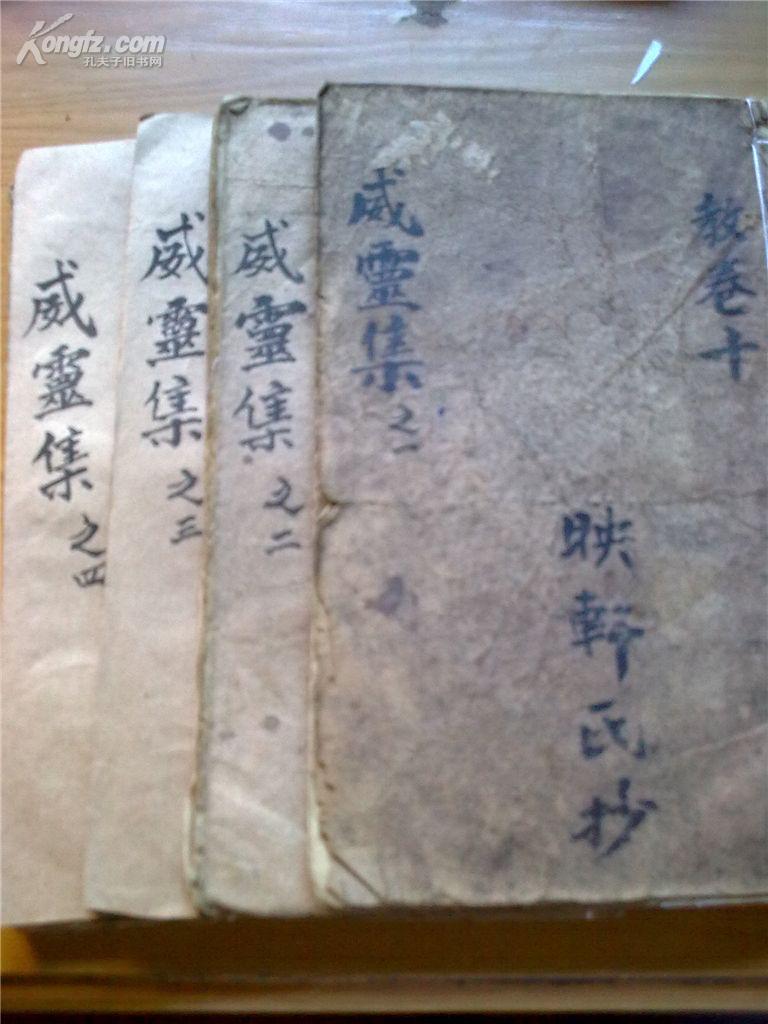 Kongfz.com
孔夫子旧书网
教卷十
映軒氏抄
威靈集之一
威靈集之二
威靈集之三
威靈集之四